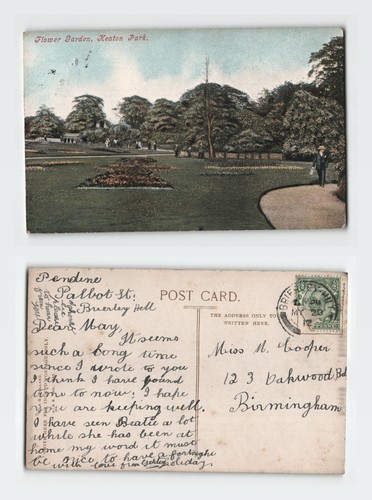 Flower Garden, Heaton Park.
Pendine
Talbot St.
Brierley Hill
POST CARD.
THE ADDRESS ONLY TO
WRITTEN HERE.
BRIERLEY HILL
MY 20
12
Dear May,
It seems
such a long time
since I wrote to you
I think I have found
time to now. I hope
you are keeping well.
I have seen Beatie a lot
while she has been at
home my word it must
be nice to have a fortnight
with love from holiday.
Miss M. Cooper
123 Oakwood Rd
Birmingham